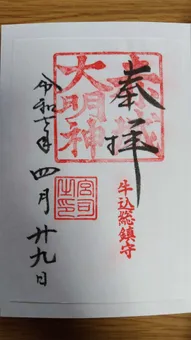 奉拝
赤城
大明神
牛込総鎮守
令和七年四月廿九日
宮司
之印